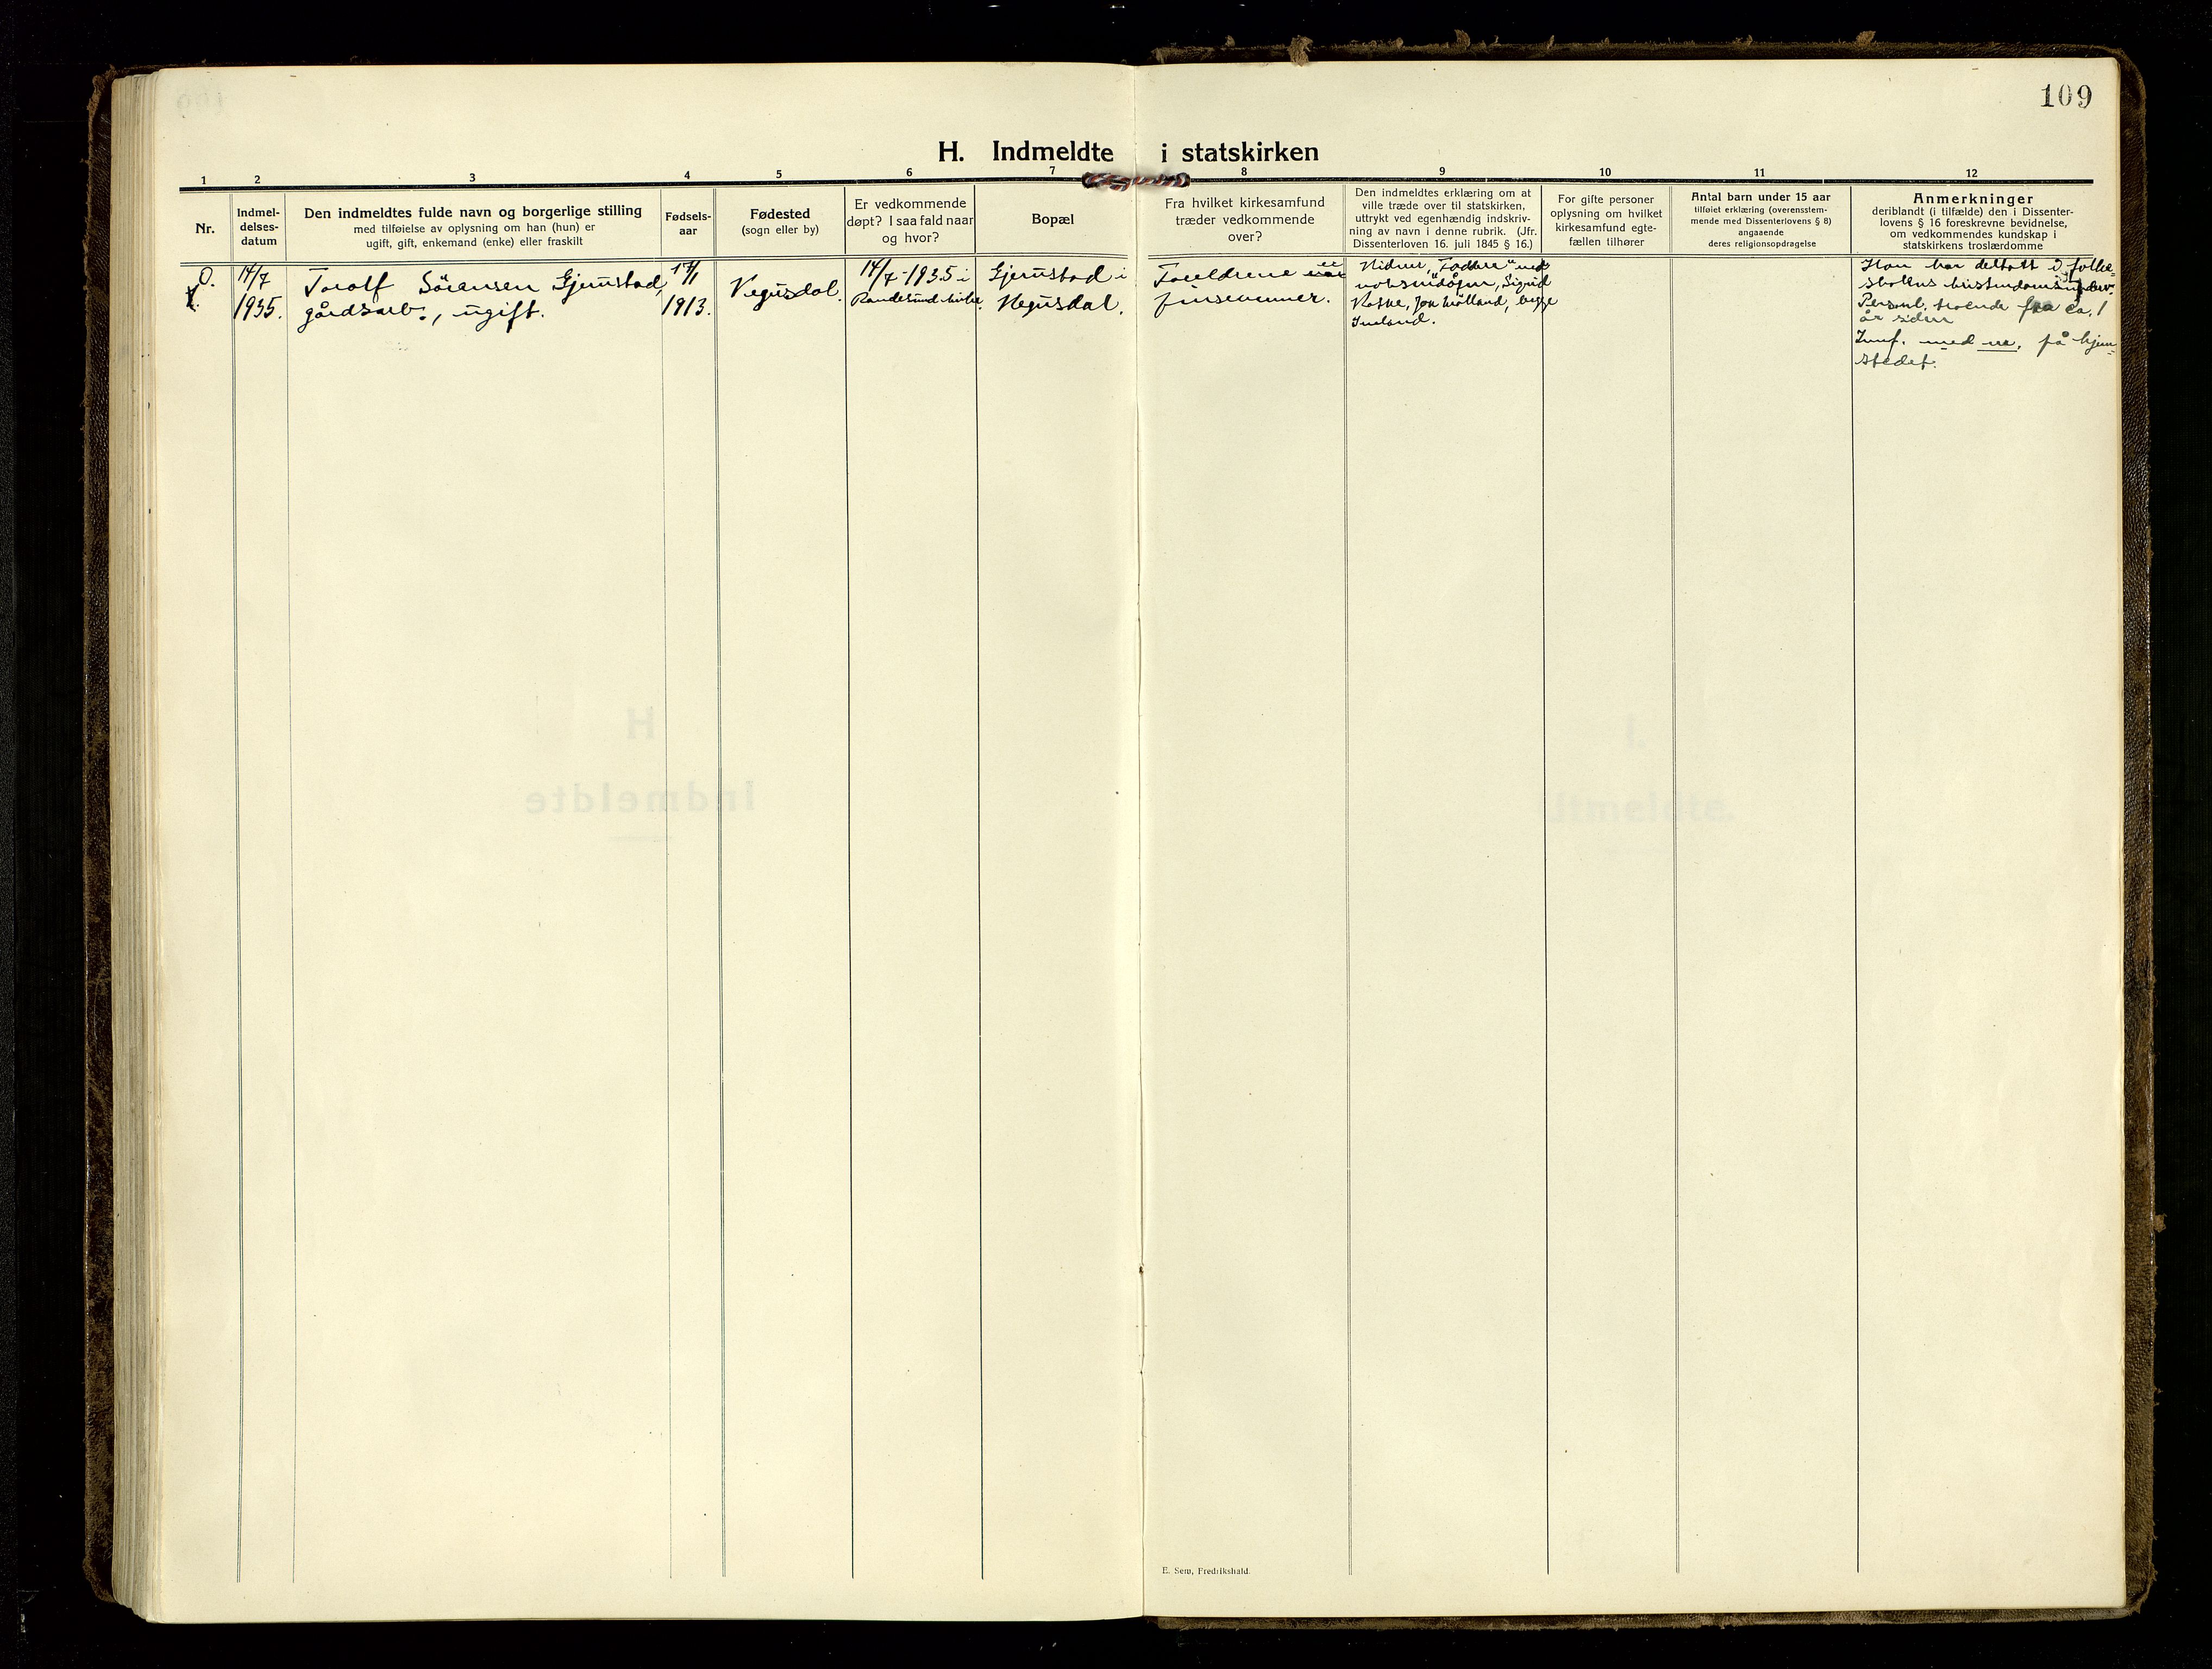 109
H. Indmeldte i statskirken
1 2 3 4 5 6 7 8 9 10 11 12
Nr.
Indmel-
delses-
datum
Den indmeldtes fulde navn og borgerlige stilling
med tilføielse av oplysning om han (hun) er
ugift, gift, enkemand (enke) eller fraskilt
Fødsels-
aar
Fødested
(sogn eller by)
Er vedkommende
døpt? I saa fald naar
og hvor?
Bopæl
Fra hvilket kirkesamfund
træder vedkommende
over?
Den indmeldtes erklæring om at
ville træde over til statskirken,
uttrykt ved egenhændig indskriv-
ning av navn i denne rubrik. (Jfr.
Dissenterloven 16. juli 1845 § 16.)
For gifte personer
oplysning om hvilket
kirkesamfund egte-
fællen tilhører
Antal barn under 15 aar
tilføiet erklæring (overensstem-
mende med Dissenterlovens § 8)
angaaende
deres religionsopdragelse
Anmerkninger
deriblandt (i tilfælde) den i Dissenter-
lovens § 16 foreskrevne bevidnelse,
om vedkommendes kundskap i
statskirkens troslærdomme
O.
1.
14/7
1935.
Torolf Sörensen Gjerustad,
gårdsarb., ugift.
17/1
1913.
Vegusdal.
14/7-1935 i
Randesund kirke.
Gjerustad i
Vegusdal.
Foreldrene er
finsevenner.
Vidner, "Faddere" ved
voksendåpen, Sigrid
Jon
begge
Han har deltatt i folke-
skolens kristendomsunderv.
Personl. troende fra ca. 1
år siden
med på hjem-
stedet.
E. Sem, Fredrikshald.